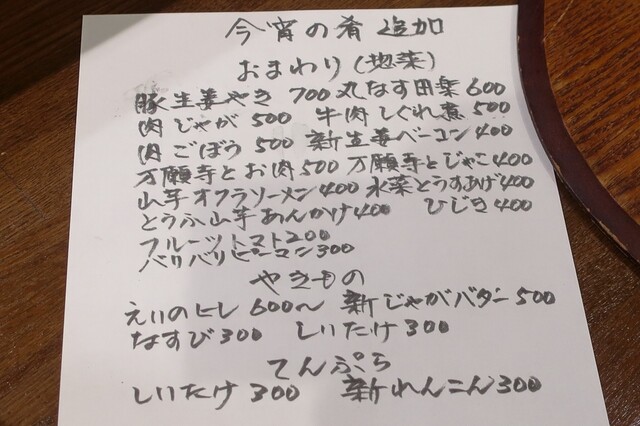 今宵の肴 追加
おまわり(惣菜)
豚生姜やき 700 丸なす田楽 600
肉じゃが 500 牛肉しぐれ煮 500
肉ごぼう 500 新生姜ベーコン 400
万願寺とお肉 500 万願寺とじゃこ 400
山芋オクラソーメン 400 水菜とうすあげ 400
とうふ山芋あんかけ 400 ひじき 400
フルーツトマト 200
バリバリピーマン 300
やきもの
えいのヒレ 600〜 新じゃがバター 500
なすび 300 しいたけ 300
てんぷら
しいたけ 300 新れんこん 300